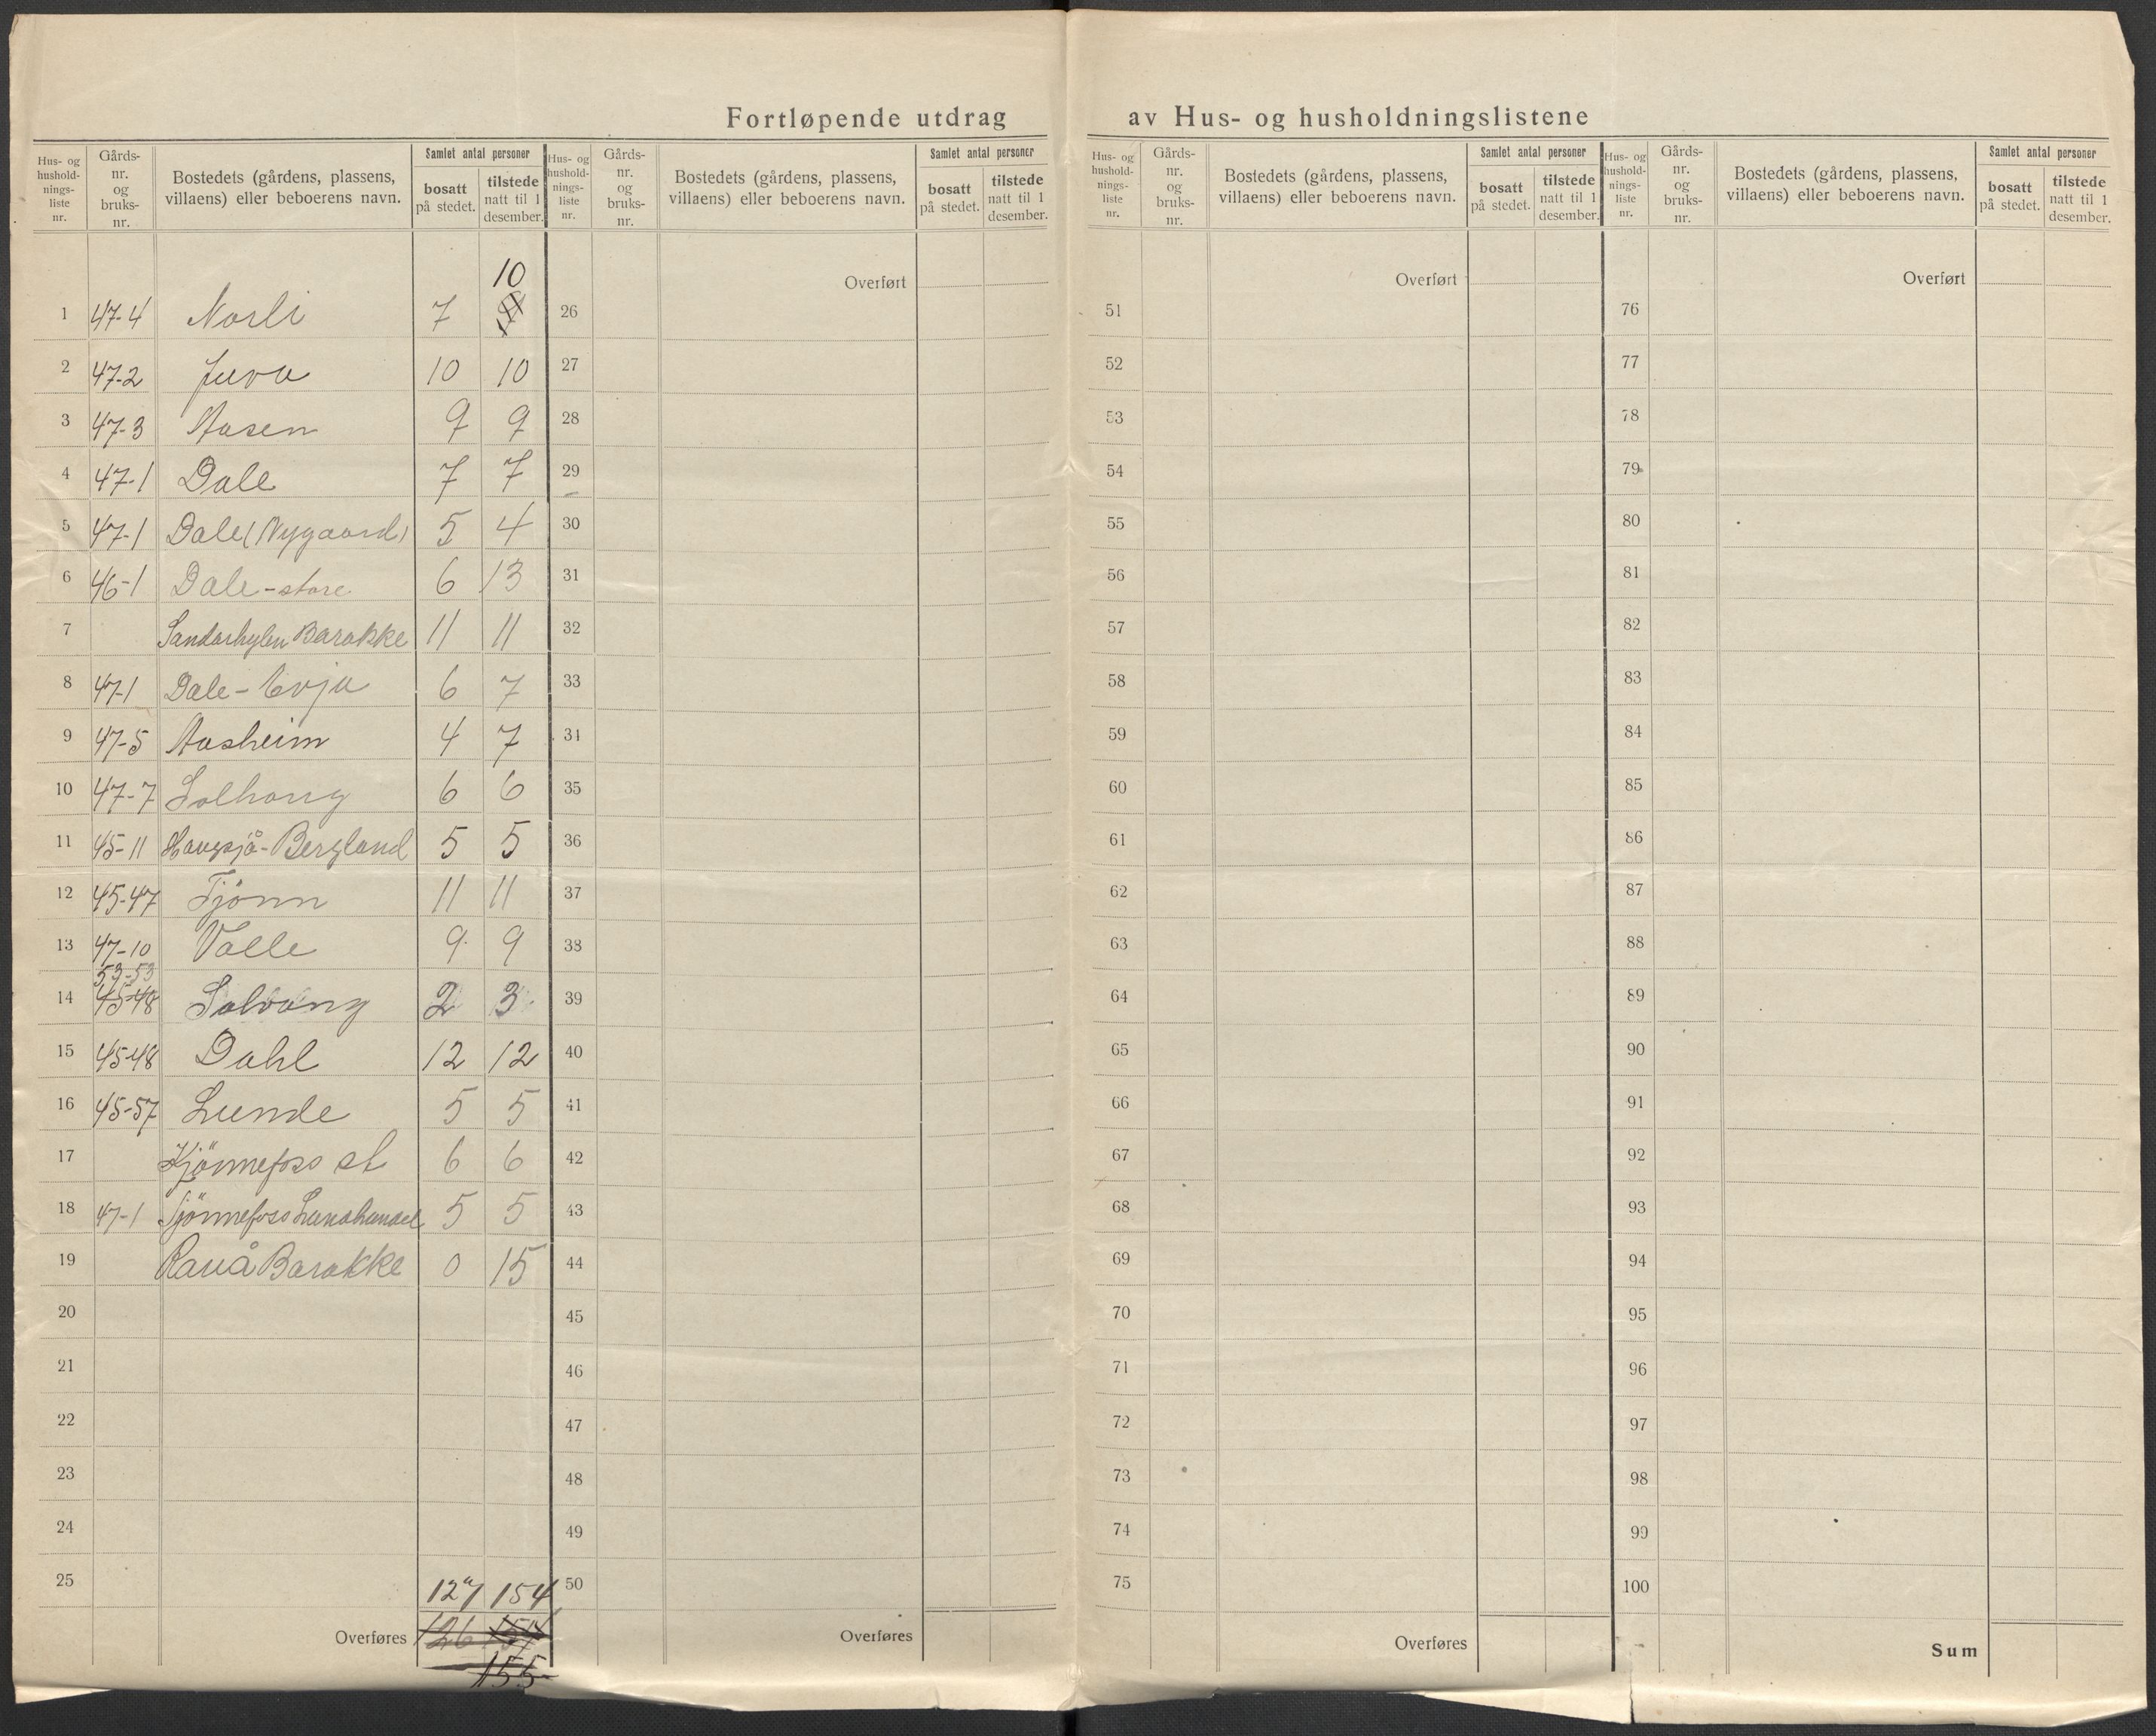 Fortløpende utdrag av Hus- og husholdningslistene
Hus- og hushold-nings-liste nr. Gårds-nr. og bruks-nr. Bostedets (gårdens, plassens, villaens) eller beboerens navn. Samlet antal personer bosatt på stedet. tilstede natt til 1 desember.
Hus- og hushold-nings-liste nr. Gårds-nr. og bruks-nr. Bostedets (gårdens, plassens, villaens) eller beboerens navn. Samlet antal personer bosatt på stedet. tilstede natt til 1 desember.
Hus- og hushold-nings-liste nr. Gårds-nr. og bruks-nr. Bostedets (gårdens, plassens, villaens) eller beboerens navn. Samlet antal personer bosatt på stedet. tilstede natt til 1 desember.
Hus- og hushold-nings-liste nr. Gårds-nr. og bruks-nr. Bostedets (gårdens, plassens, villaens) eller beboerens navn. Samlet antal personer bosatt på stedet. tilstede natt til 1 desember.
10
Overført Overført Overført
1 47-4 Norli 7 26 51 76
2 47-2 Juva 10 10 27 52 77
3 47-3 Aasen 9 9 28 53 78
4 47-1 Dale 7 7 29 54 79
5 47-1 Dale (Nygaard) 5 4 30 55 80
6 46-1 Dale-store 6 13 31 56 81
7 Barakke 11 11 32 57 82
8 47-1 Dale- Evju 6 7 33 58 83
9 47-5 Aasheim 4 7 34 59 84
10 47-7 Solhaug 6 6 35 60 85
11 45-11 Haugsjå-Bergland 5 5 36 61 86
12 45-47 Tjönn 11 11 37 62 87
13 47-10 Valle 9 9 38 63 88
53-53
14 45-48 Solvang 2 3 39 64 89
15 45-48 Dahl 12 12 40 65 90
16 45-57 Lunde 5 5 41 66 91
17 Kjönnefoss st 6 6 42 67 92
18 47-1 Tjönnefoss Landhandel 5 5 43 68 93
19 Rauå Barakke 0 15 44 69 94
20 45 70 95
21 46 71 96
22 47 72 97
23 48 73 98
24 49 74 99
25 127 154 50 75 100
Overføres 126 157 Overføres Overføres Sum
155